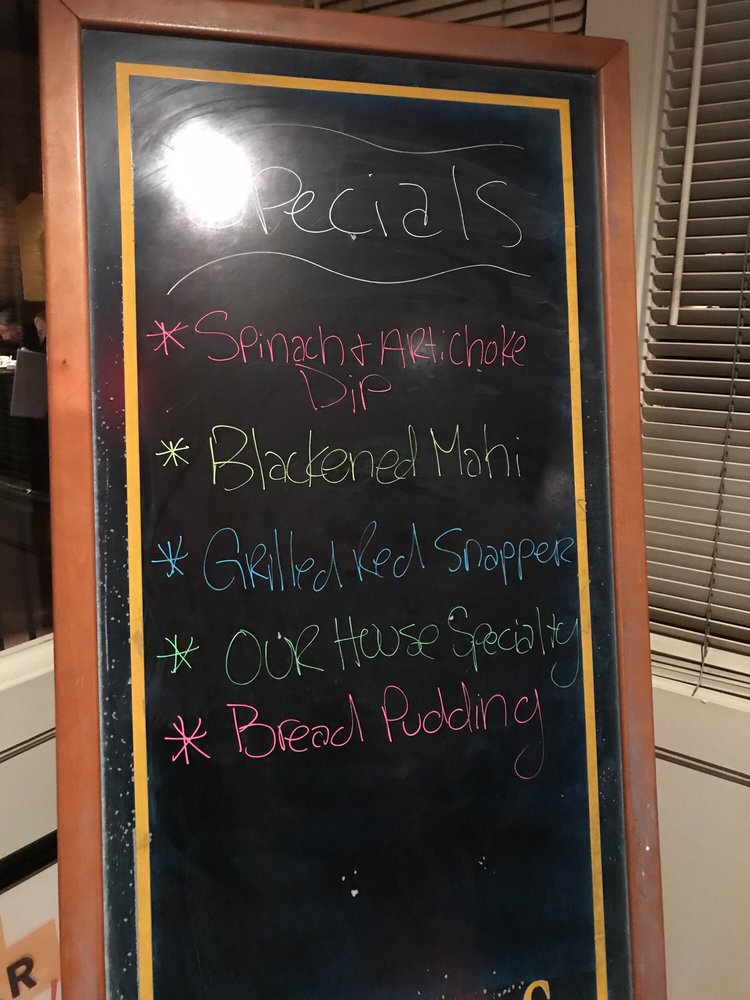 Specials
* Spinach + ARtichoke
Dip
* Blackened Mahi
* GRilled Red SnappeR
* OUR House Specialty
* Bread Pudding
R